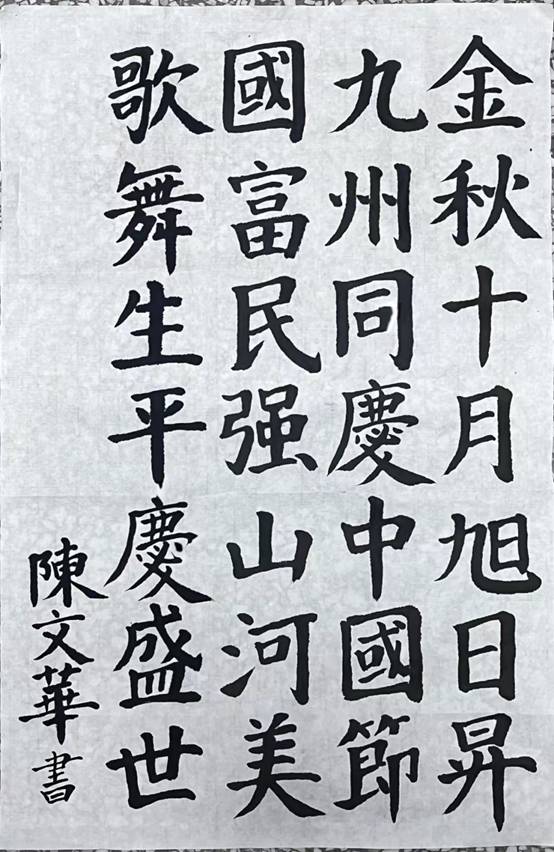 金秋十月旭日昇
九州同慶中國節
國富民强山河美
歌舞生平慶盛世
陳文華書